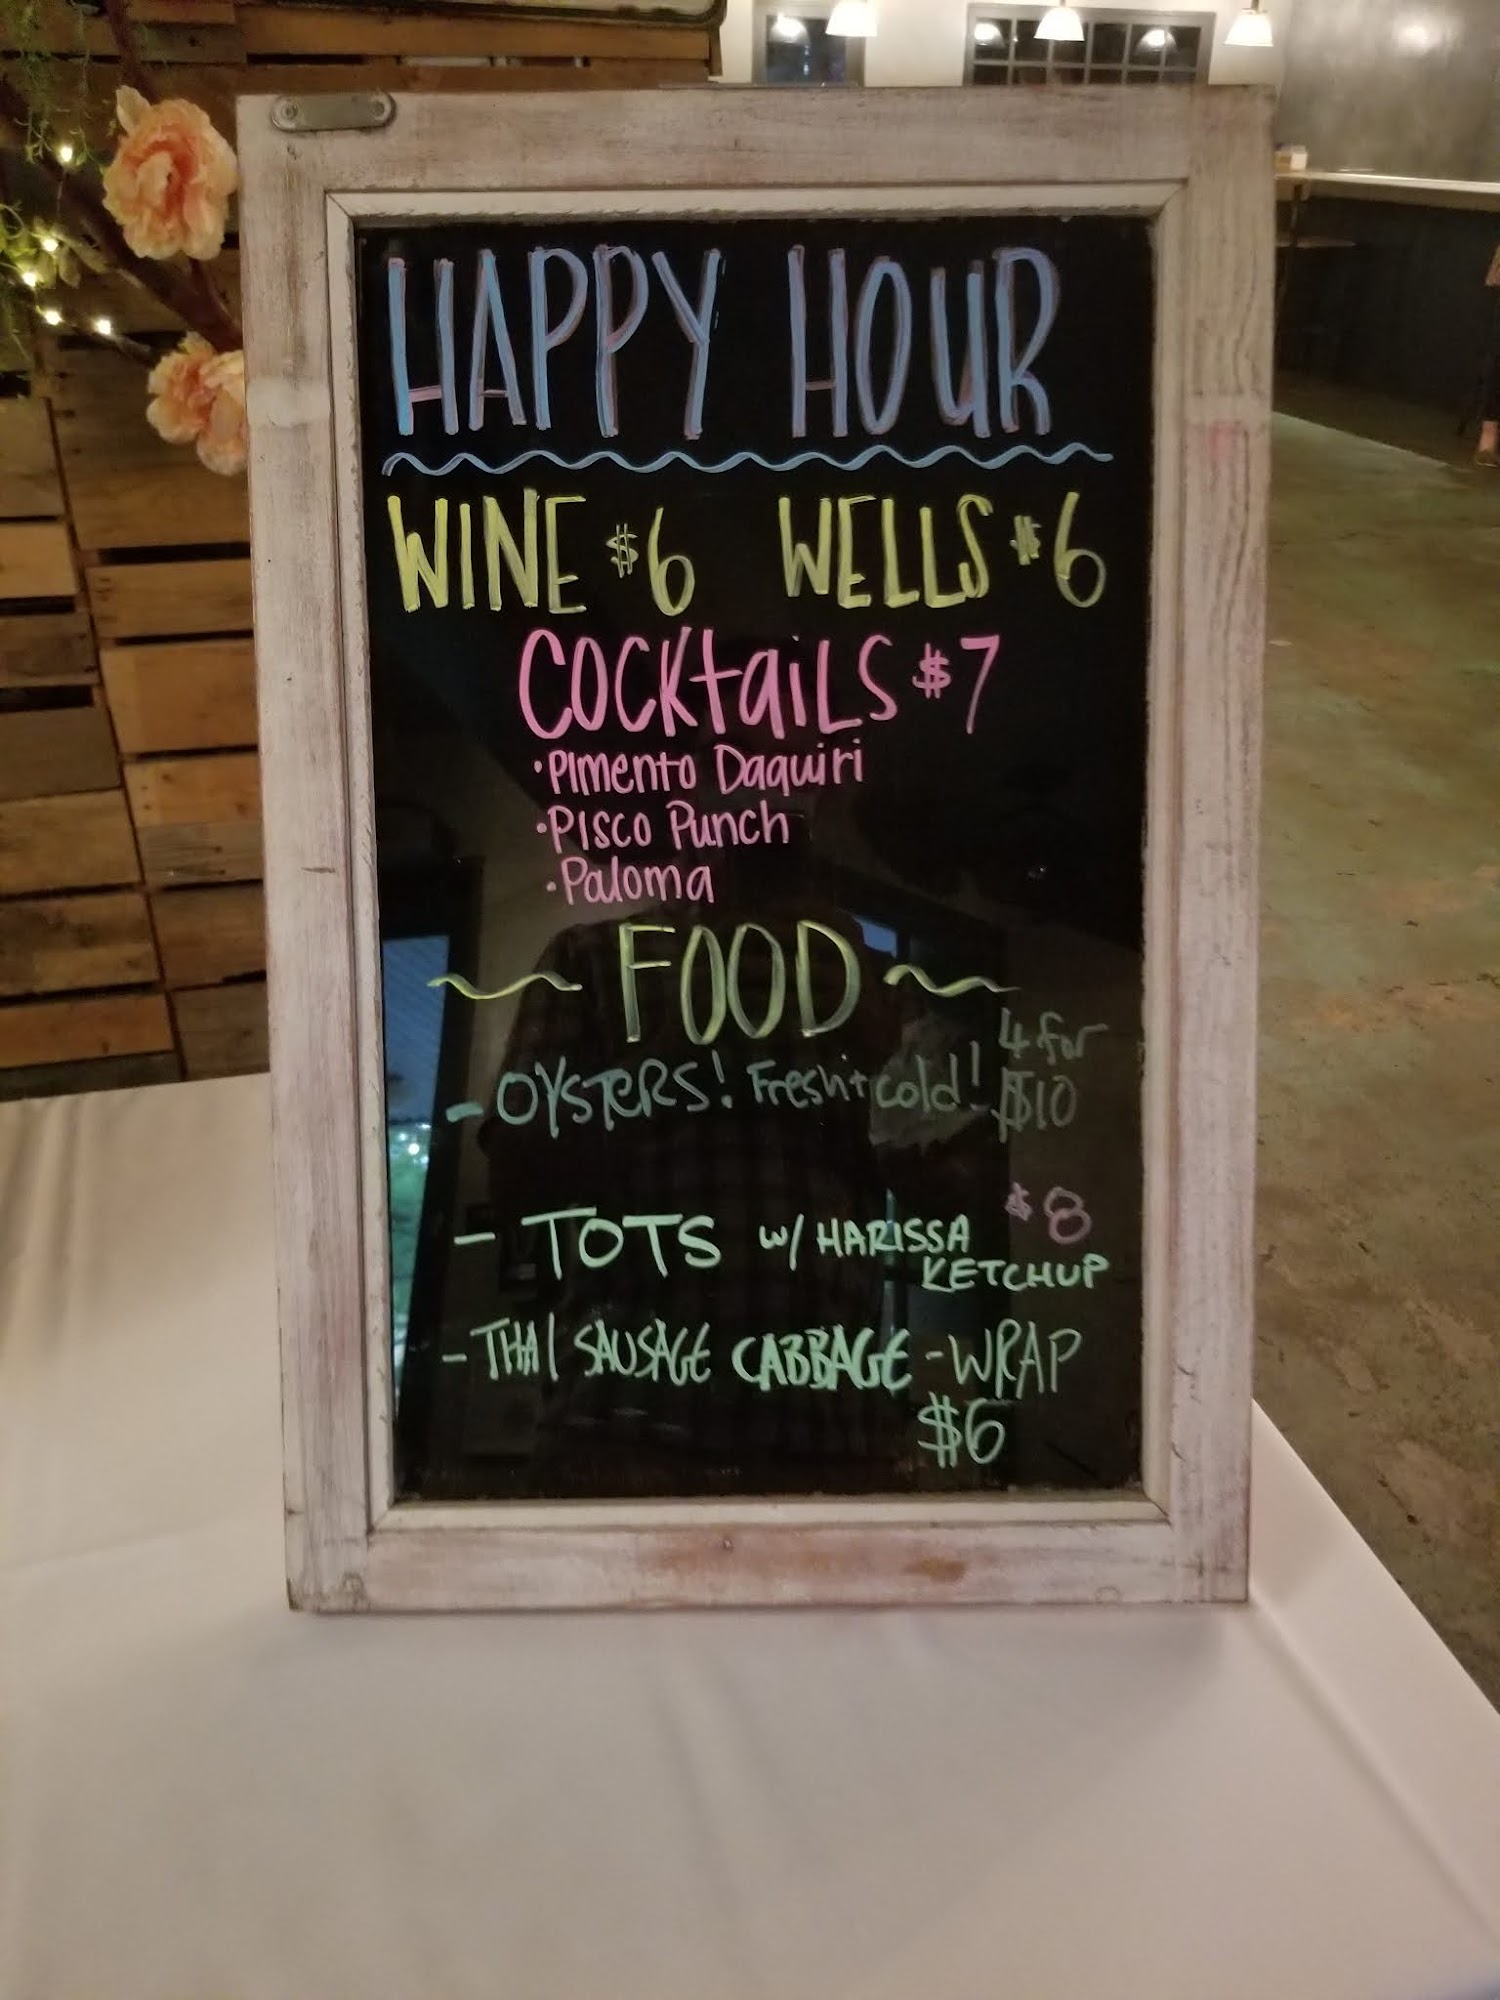 HAPPY HOUR
WINE $6 WELLS $6
COCKtaiLS $7
• Pimento Daquiri
• Pisco Punch
• Paloma
~ FOOD ~
- OYSTERS! Fresh + cold! 4 for $10
- TOTS w/ HARISSA KETCHUP $8
- THAI SAUSAGE CABBAGE - WRAP
$6